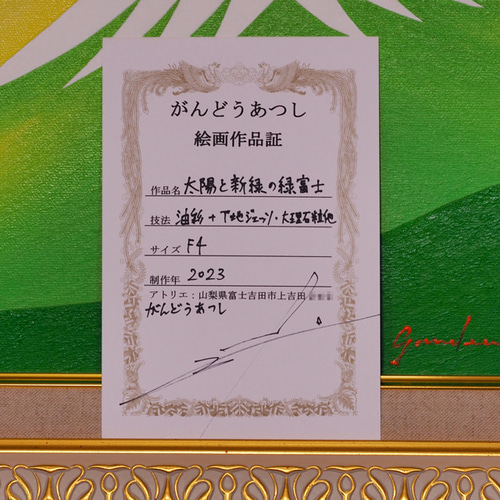 がんどうあつし
絵画作品証
作品名 太陽と新緑の緑富士
技法 油彩+下地ジェッソ・大理石粒他
サイズ F4
制作年 2023
アトリエ:山梨県富士吉田市上吉田
がんどうあつし